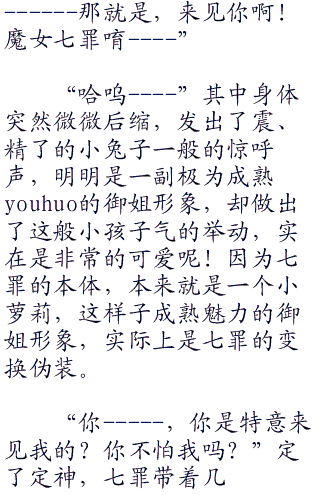 ------那就是，来见你啊！
魔女七罪唷----”
“哈呜----”其中身体
突然微微后缩，发出了震、
精了的小兔子一般的惊呼
声，明明是一副极为成熟
youhuo的御姐形象，却做出
了这般小孩子气的举动，实
在是非常的可爱呢！因为七
罪的本体，本来就是一个小
萝莉，这样子成熟魅力的御
姐形象，实际上是七罪的变
换伪装。
“你-----，你是特意来
见我的？你不怕我吗？”定
了定神，七罪带着几